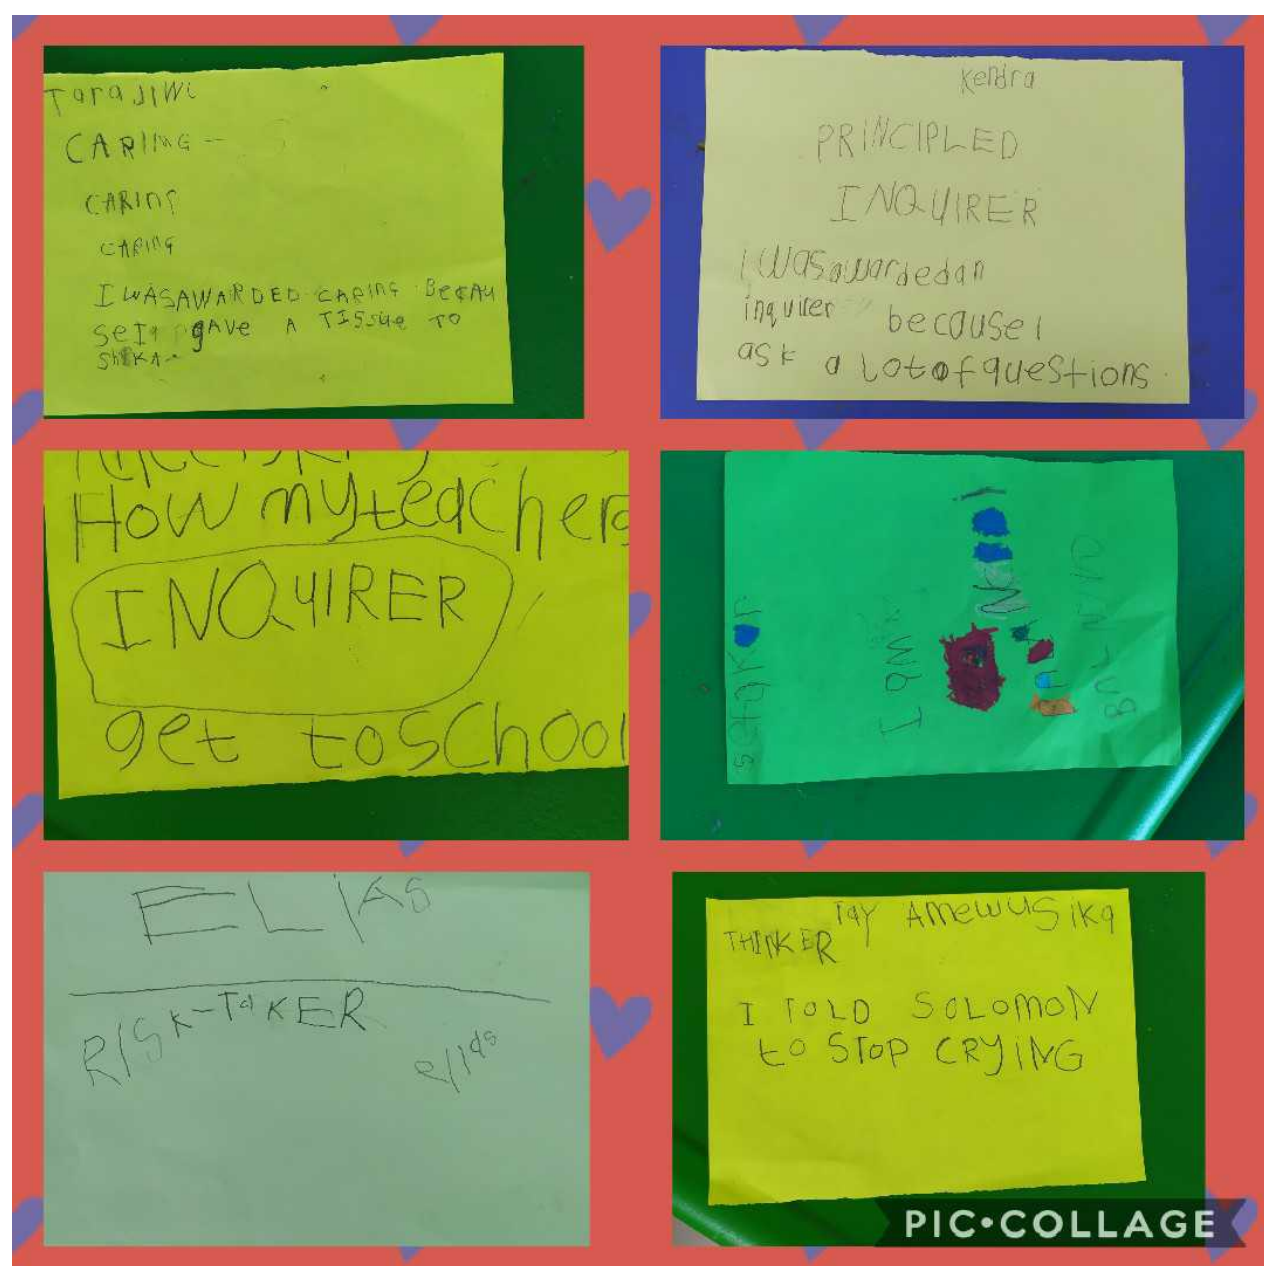 Tarajiwi
CARING -
CARING
CARING
I WAS AWARDED CARING BECAU
SE I gAVE A TISSUE TO
SHIKA
Kendra
PRINCIPLED
INQUIRER
I was awarded an
inquirer because I
ask a lot of questions
How my teachers
INQUIRER
get to school
I am
ELIAS
RISK-TAKER
elias
Tay Amewusika
THINKER
I TOLD SOLOMON
to STOP CRYING
PIC•COLLAGE